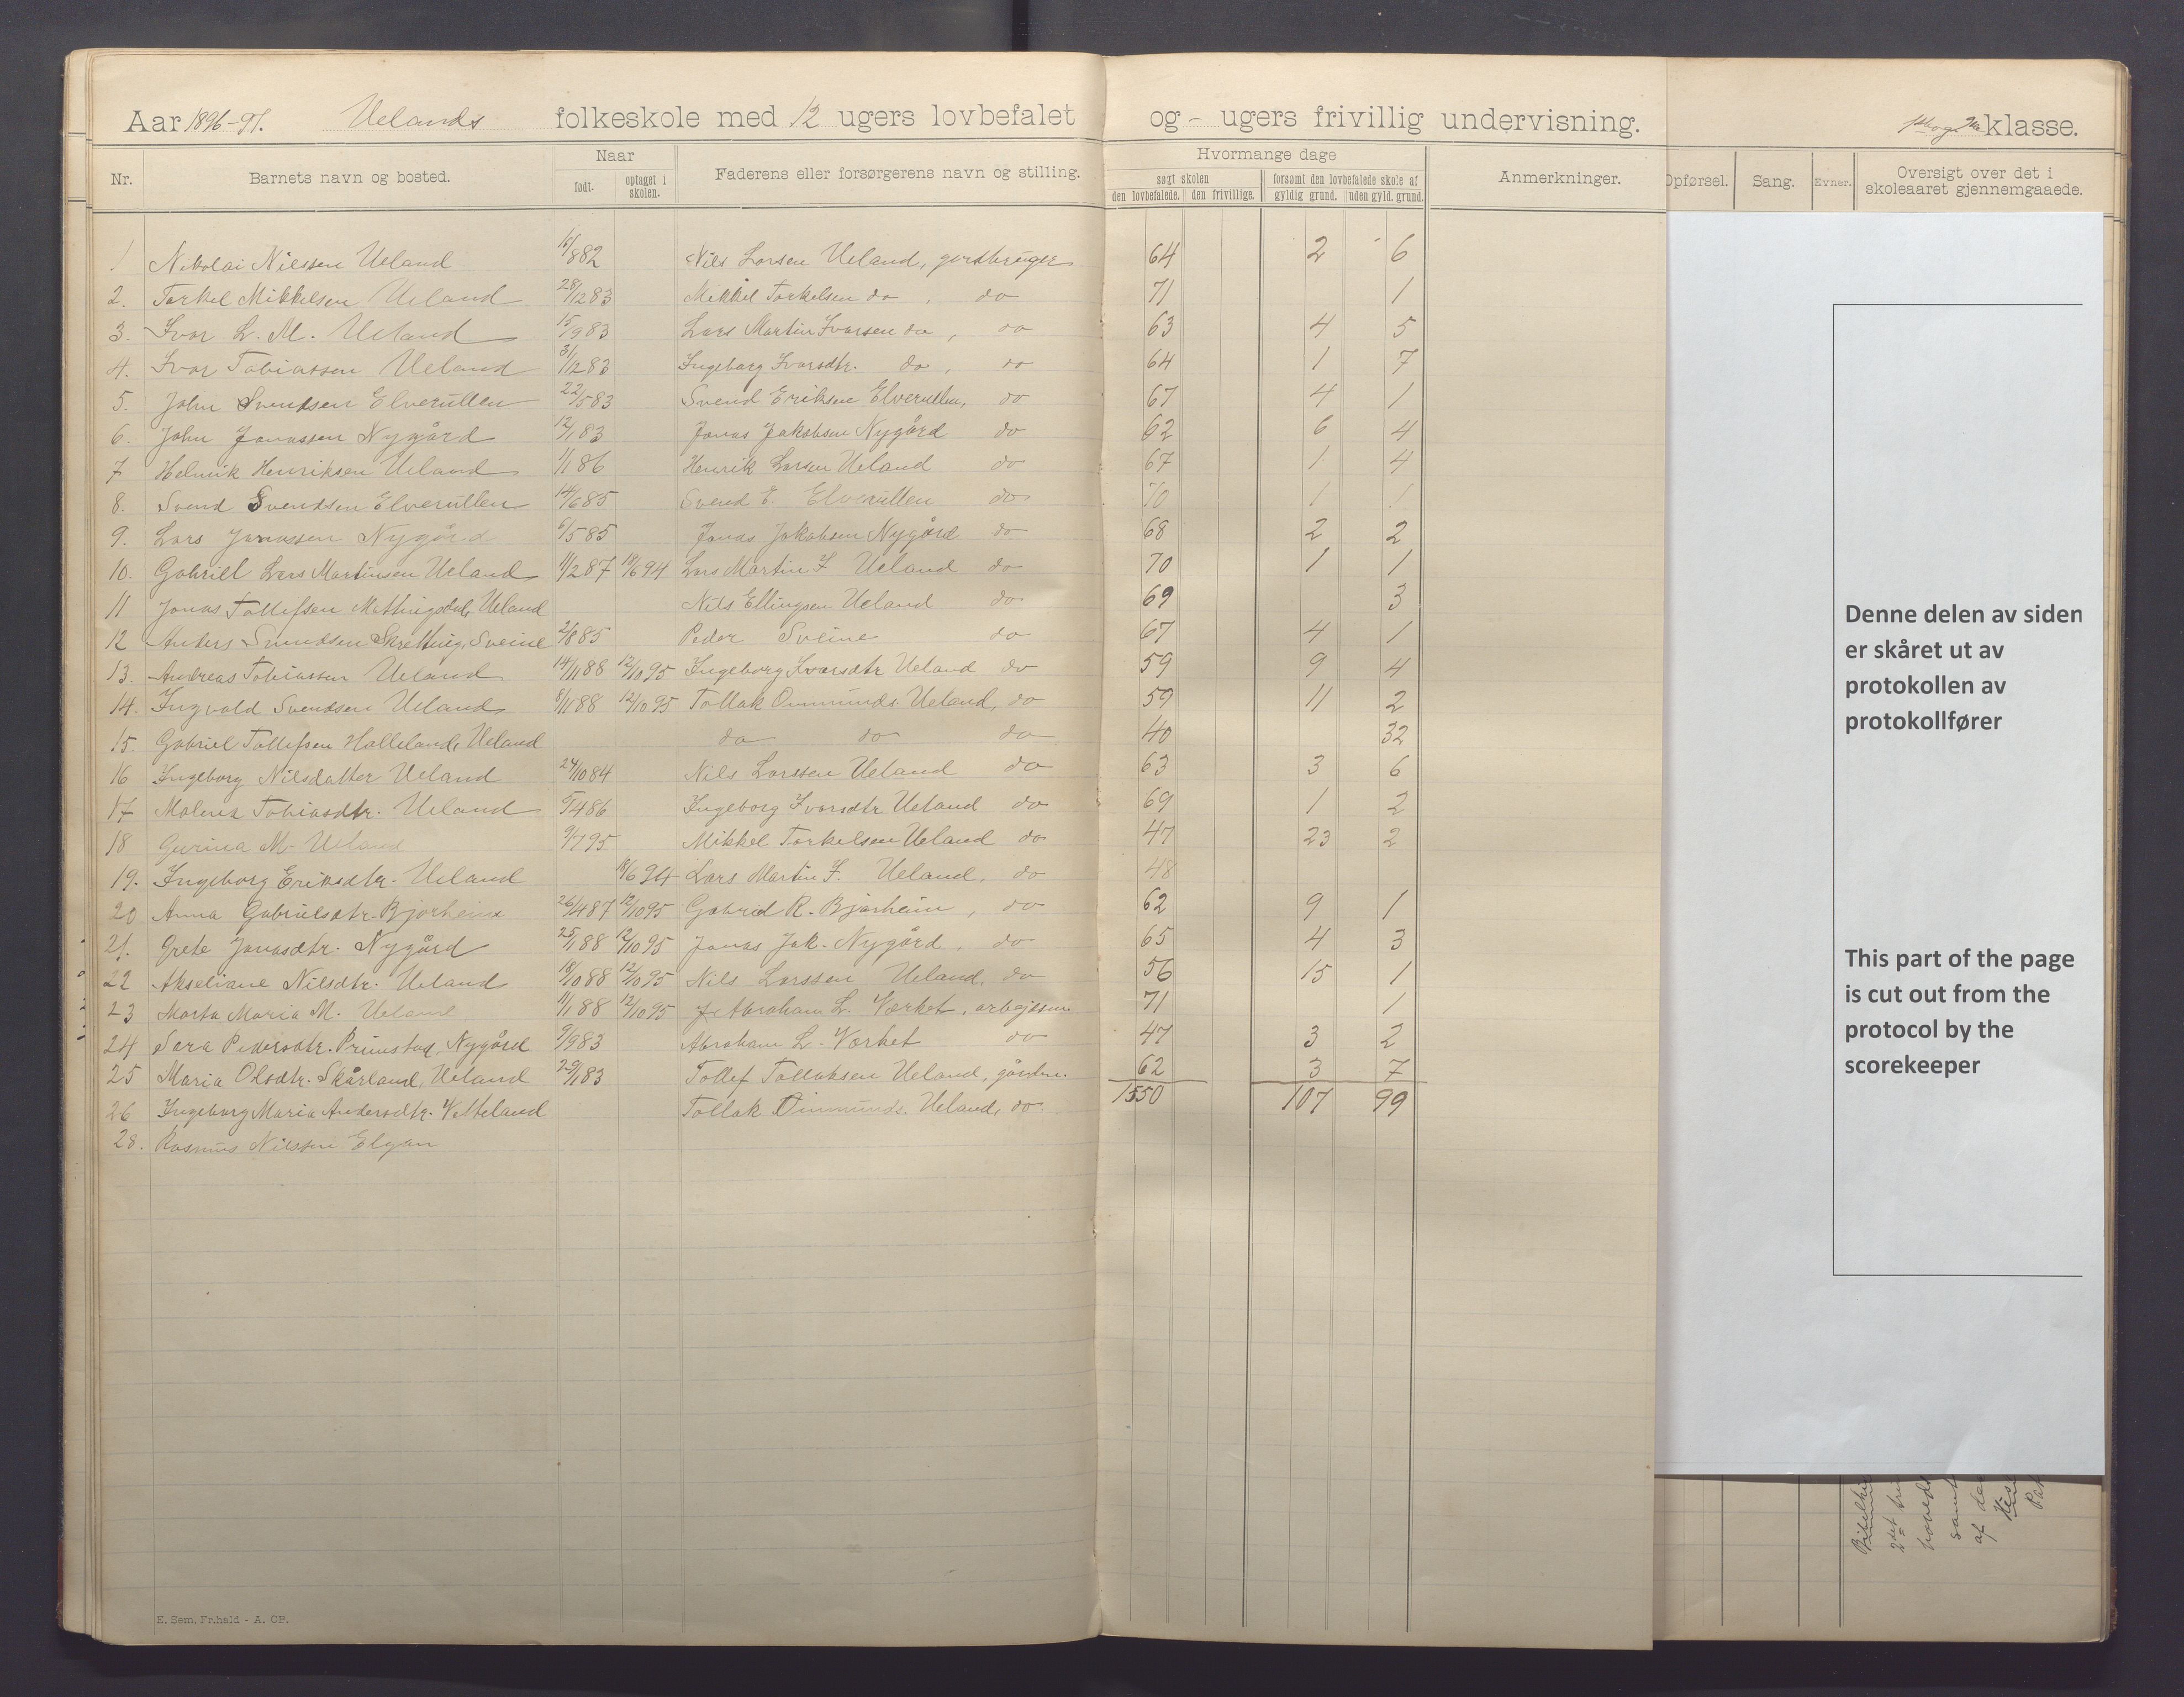 Aar 1896-97. Uelands folkeskole med 12 ugers lovbefalet og - ugers frivillig undervisning. klasse.
Nr. Barnets navn og bosted. Naar født. optaget i skolen. Faderens eller forsørgerens navn og stilling. Hvormange dage søgt skolen den lovbefalede. den frivillige. forsømt den lovbefalede skole af gyldig grund. uden gyld. grund. Anmerkninger. Opførsel. Sang. Evner. Oversigt over det i skoleaaret gjennemgaaede.
1 Nikolai Nilssen Ueland 882 Nils Larsen Ueland, gardbruger 64 2 6
2. Torkel Mikkelsen Ueland 28/12 83 Mikkel Torkelsen do, do 71 1
3. Ivar L. M. Ueland 15/9 83 Lars Martin Ivarsen do, do 63 4 5
4. Ivar Tobiassen Ueland 31/12 83 Ingeborg Ivarsdtr. do, do 64 1 7
5. John Svendsen Elverutten 22/5 83 Svend Eriksen Elverutten, do 67 4 1
6. John Jonassen Nygård 12/1 83 Jonas Jakobsen Nygård do 62 6 4
7 Helmik Henriksen Ueland 1/1 86 Henrik Larsen Ueland do 67 1 4
8. Svend Svendsen Elverutten 14/6 85 Svend E. Elverutten do 70 1 1
9. Lars Jonassen Nygård 6/5 85 Jonas Jakobsen Nygård do 68 2 2
10. Gabriel Lars Martinsen Ueland 1/12 87 18/6 94 Lars Martin I. Ueland do 70 1 1
11 Jonas Tollefsen Mattingsdal, Ueland Nils Ellingsen Ueland do 69 3
12 Anders Svendsen Skretting, Sveine 2/8 85 Peder Sveine do 67 4 1
13. Andreas Tobiassen Ueland 14/11 88 12/10 95 Ingeborg Ivarsdtr Ueland do 59 9 4
14. Ingvald Svendsen Ueland 8/11 88 12/10 95 Tollak Ommunds. Ueland, do 59 11 2
15. Gabriel Tollefsen Halleland, Ueland do do do 40 32
16 Ingeborg Nilsdatter Ueland 24/10 84 Nils Larssen Ueland do 63 3 6
17 Malena Tobiasdtr. Ueland 5/4 86 Ingeborg Ivarsdtr Ueland do 69 1 2
18 Gurina M. Ueland 9/7 95 Mikkel Torkelsen Ueland do 47 23 2
19. Ingeborg Eriksdtr. Ueland 18/6 94 Lars Martin I. Ueland, do 48
20 Anna Gabrielsdtr. Bjørheim 26/4 87 12/10 95 Gabriel R. Bjørheim, do 62 9 1
21. Grete Jonasdtr. Nygård 25/1 88 12/10 95 Jonas Jak. Nygård, do 65 4 3
22 Akseliane Nilsdtr. Ueland 18/10 88 12/10 95 Nils Larssen Ueland, do 56 15 1
23 Marta Maria M. Ueland 11/1 88 12/10 95 Abraham L. Værket, 71 1
24 Sara Pedersdtr. Nygård 9/9 83 Abraham L. Værket do 47 3 2
25 Maria Olsdtr. Skårland, Ueland 29/1 83 Tollef Tollaksen Ueland, 62 3 7
26 Ingeborg Maria Andersdtr. Tollak Ommunds. Ueland, do. 1550 107 99
28. Rasmus Nilssen Elgan
Denne delen av siden
er skåret ut av
protokollen av
protokollfører
This part of the page
is cut out from the
protocol by the
scorekeeper
E. Sem, Fr.hald - A. CB.